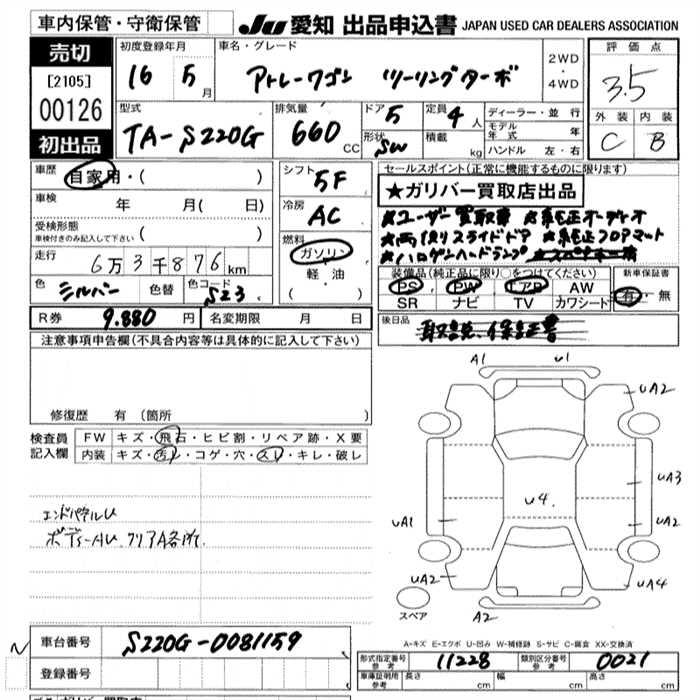 車内保管・守衛保管
JU 愛知 出品申込書 JAPAN USED CAR DEALERS ASSOCIATION
売切
[2105]
00126
初出品
初度登録年月
16 5月
車名・グレード
アトレーワゴン ツーリングターボ
2WD
・
4WD
評価点
3.5
型式
TA-S220G
排気量
660 CC
ドア 5
形状 SW
定員 4人
積載 kg
ディーラー・並行
モデル年式 年
ハンドル 左・右
外装 内装
C B
車歴
自家用・( )
車検 年 月( 日)
受検形態
車検付きのみ記入して下さい ( )
走行 6万3千876km
色 シルバー 色替 色コード S23
シフト 5F
冷房 AC
燃料
ガソリン
軽・油
( )
セールスポイント(正常に機能するものに限ります)
★ガリバー買取店出品
★ユーザー買取車 ★純正オーディオ
★両側スライドドア ★純正フロアマット
★ハロゲンヘッドランプ ★スペアキー有
装備品(純正品に限り○をつけてください)
PS PW エアB AW
SR ナビ TV カワシート
新車保証書
有・無
R券 9.880円 名変期限 月 日
後日品 取説、保証書
注意事項申告欄(不具合内容等は具体的に記入して下さい)
修復歴 有(箇所 )
検査員記入欄
FW キズ・飛石・ヒビ割・リペア跡・X要
内装 キズ・汚レ・コゲ・穴・スレ・キレ・破レ
エンドパネルU
ボデーAU クリアA各所
A1 U1
UA2
UA3
U4
UA1 UA2
UA2 UA4
スペア A2
A-キズ E-エクボ U-凹み W-補修跡 S-サビ C-腐食 XX-交換済
車台番号 S220G-0081159
登録番号
形式指定番号 参考 11228 類別区分番号 参考 0021
車庫証明用 参考 長さ cm 幅 cm 高さ cm